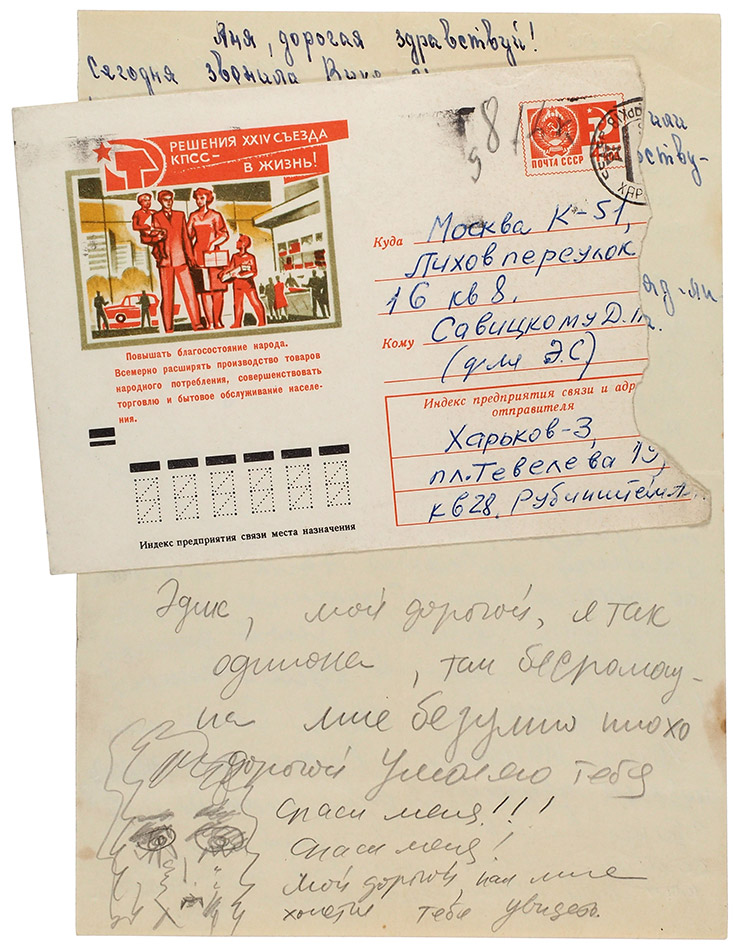 Аня, дорогая здравствуй!
Сегодня звонила
РЕШЕНИЯ XXIV СЪЕЗДА
КПСС –
В ЖИЗНЬ!
ПОЧТА СССР
Повышать благосостояние народа.
Всемерно расширять производство товаров
народного потребления, совершенствовать
торговлю и бытовое обслуживание населе-
ния.
Индекс предприятия связи места назначения
Куда Москва К-51,
Лихов переулок
16 кв 8.
Кому Савицкому Д.
(для Э.С)
Индекс предприятия связи и адр
отправителя
Харьков-3,
пл. Тевелева 19,
кв 28. Рубинштейн А.
Эдик, мой дорогой, я так
одинока, так беспомощ-
на мне безумно плохо
дорогой Умоляю тебя
спаси меня!!!
спаси меня!
Мой дорогой, как мне
хочется тебя увидеть.